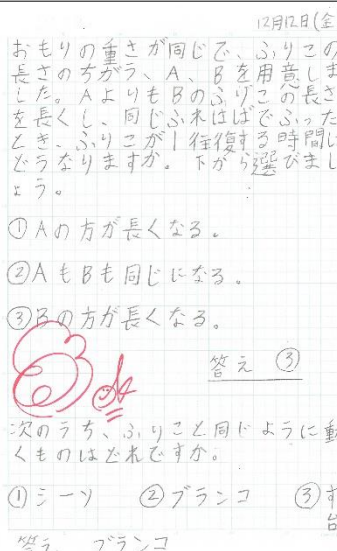 12月12日(金
おもりの重さが同じで、ふりこの
長さのちがう、A、Bを用意しま
した。AよりもBのふりこの長さ
を長くし、同じふれはばでふった
とき、ふりこが1往復する時間は
どうなりますか。下から選びまし
ょう。
①Aの方が長くなる。
②AもBも同じになる。
③Bの方が長くなる。
答え ③
次のうち、ふりこと同じように動
くものはどれですか。
①シーソ ②ブランコ ③す
台
答え ブランコ